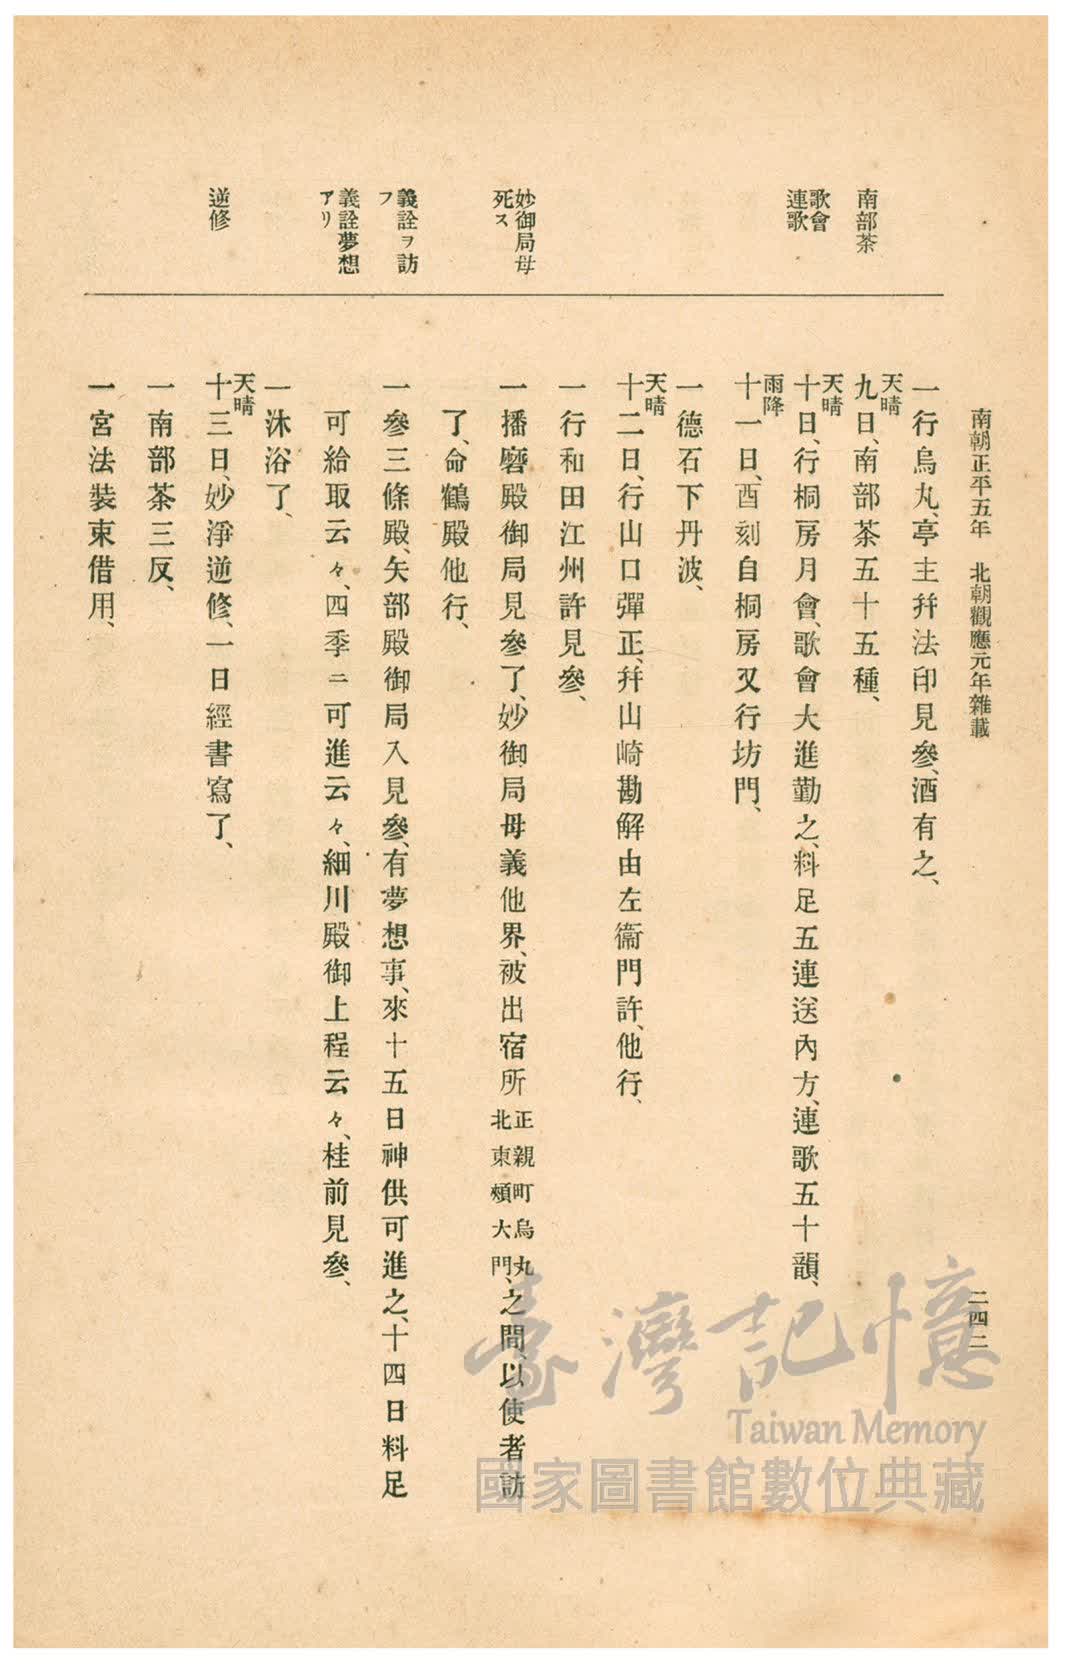 南朝正平五年　北朝觀應元年雜載
二四二
南部茶
歌會
連歌
妙御局母
死ス
義詮ヲ訪
フ
義詮夢想
アリ
逆修
一行烏丸、亭主幷法印見參、酒有之、
天晴
九日、南部茶五十五種、
天晴
十日、行桐房月會、歌會大進勤之、料足五連送內方、連歌五十韻、
雨降
十一日、酉刻自桐房又行坊門、
一德石下丹波、
天晴
十二日、行山口彈正、幷山崎勘解由左衞門許、他行、
一行和田江州許見參、
一播磨殿御局見參了、妙御局母義他界、被出宿所正親町烏丸北東頰大門、之間、以使者訪
了、命鶴殿他行、
一參三條殿、矢部殿御局入見參、有夢想事、來十五日神供可進之、十四日料足
可給取云々、四季ニ可進云々、細川殿御上程云々、桂前見參、
一沐浴了、
天晴
十三日、妙淨逆修、一日經書寫了、
一南部茶三反、
一宮法裝束借用、
臺灣記憶
Taiwan Memory
國家圖書館數位典藏